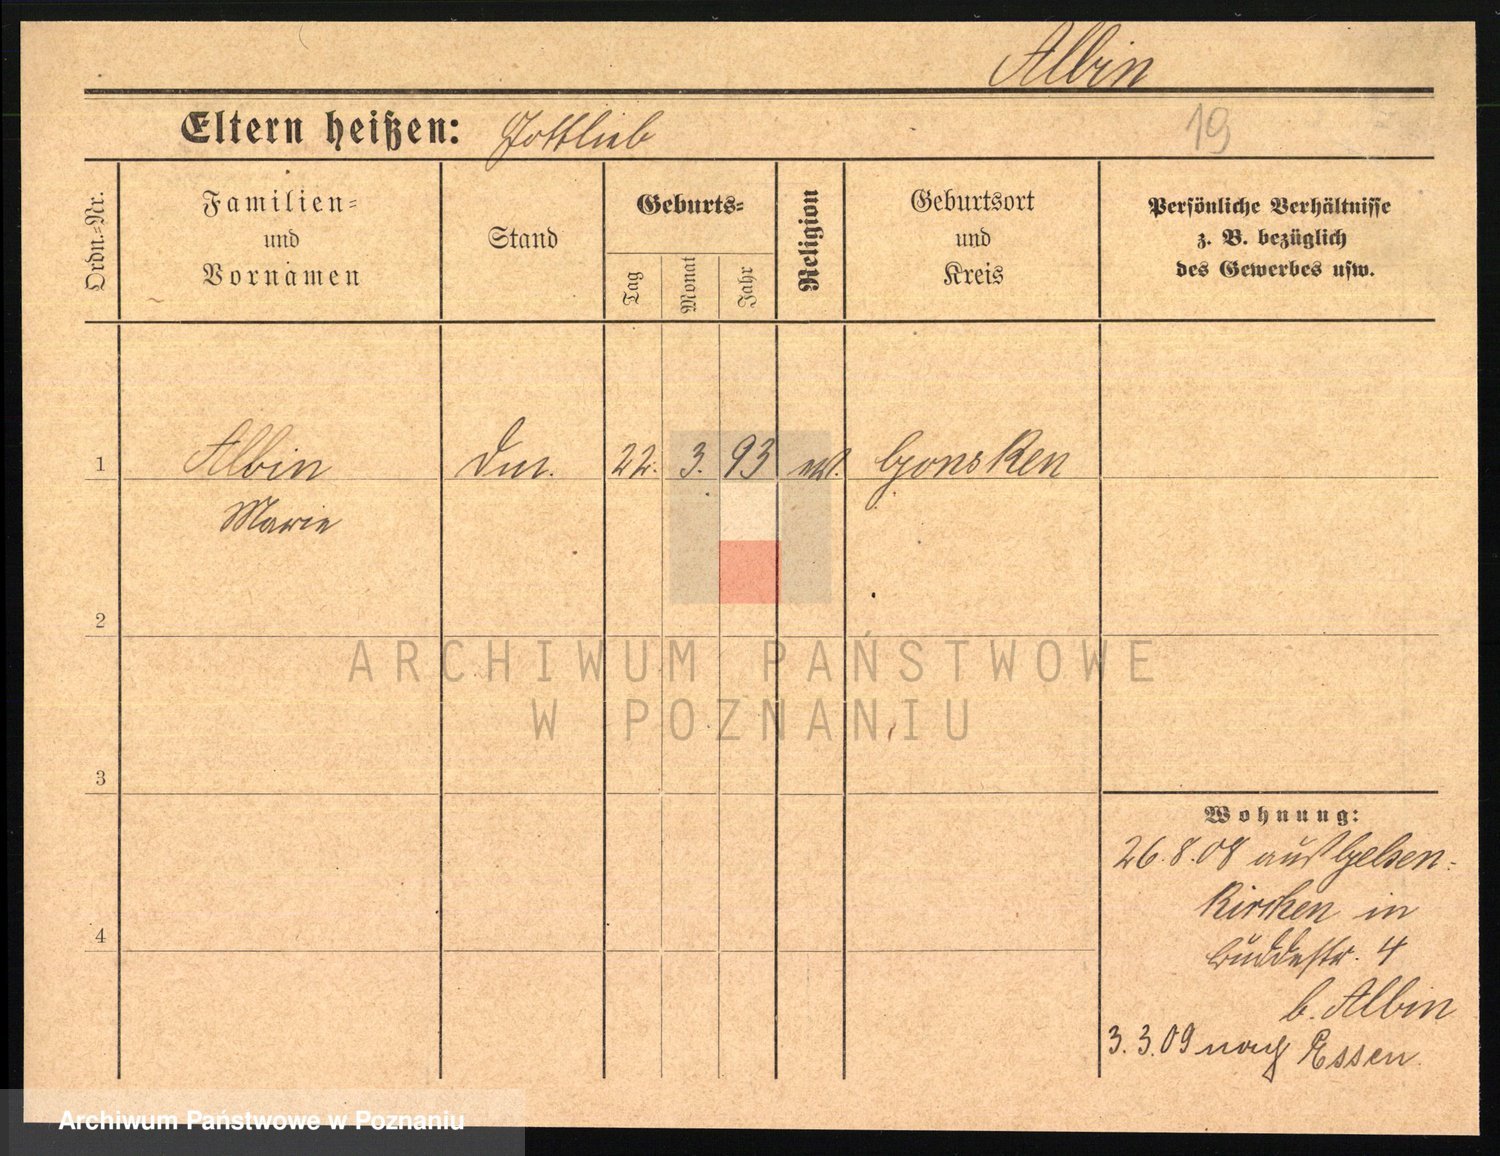 Albin
Eltern heißen: Gottlieb
19
Ordn.-Nr.
Familien-
und
Vornamen
Stand
Geburts-
Tag
Monat
Jahr
Religion
Geburtsort
und
Kreis
Persönliche Verhältnisse
z. B. bezüglich
des Gewerbes usw.
1 Albin 22. 3. 93 Gonsken
Marie
2
3
4
Wohnung:
26.8.08 aus Gelsen-
kirchen in
Buddestr. 4
b. Albin
3.3.09 nach Essen
ARCHIWUM PAŃSTWOWE
W POZNANIU
Archiwum Państwowe w Poznaniu